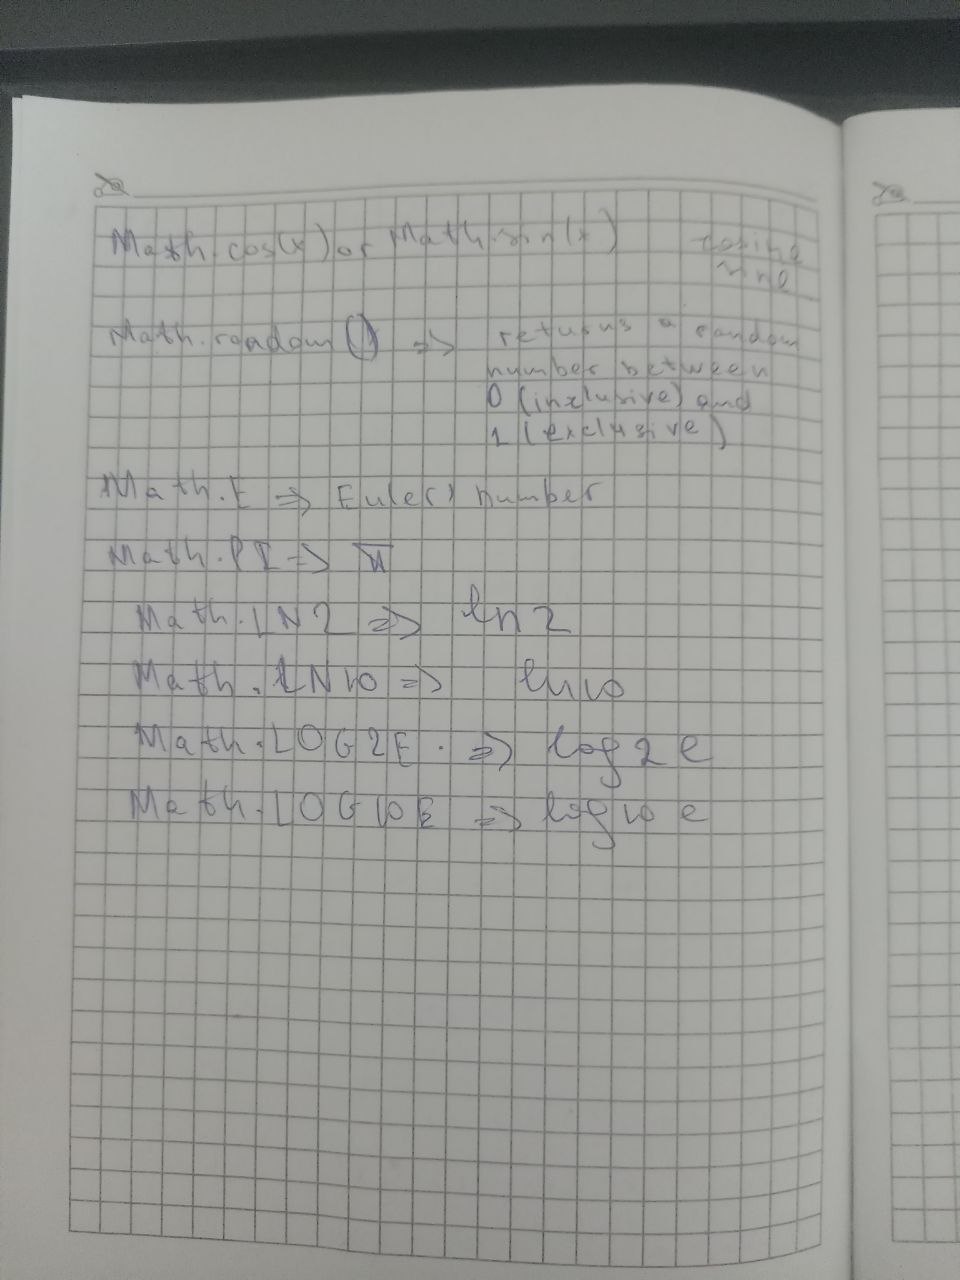 Math.cos(x) or Math.sin(x) cosine
sine
Math.random() => returns a random
number between
0 (inclusive) and
1 (exclusive)
Math.E => Euler's number
Math.PI => π
Math.LN2 => ln 2
Math.LN10 => ln10
Math.LOG2E. => log2 e
Math.LOG10E => log10 e